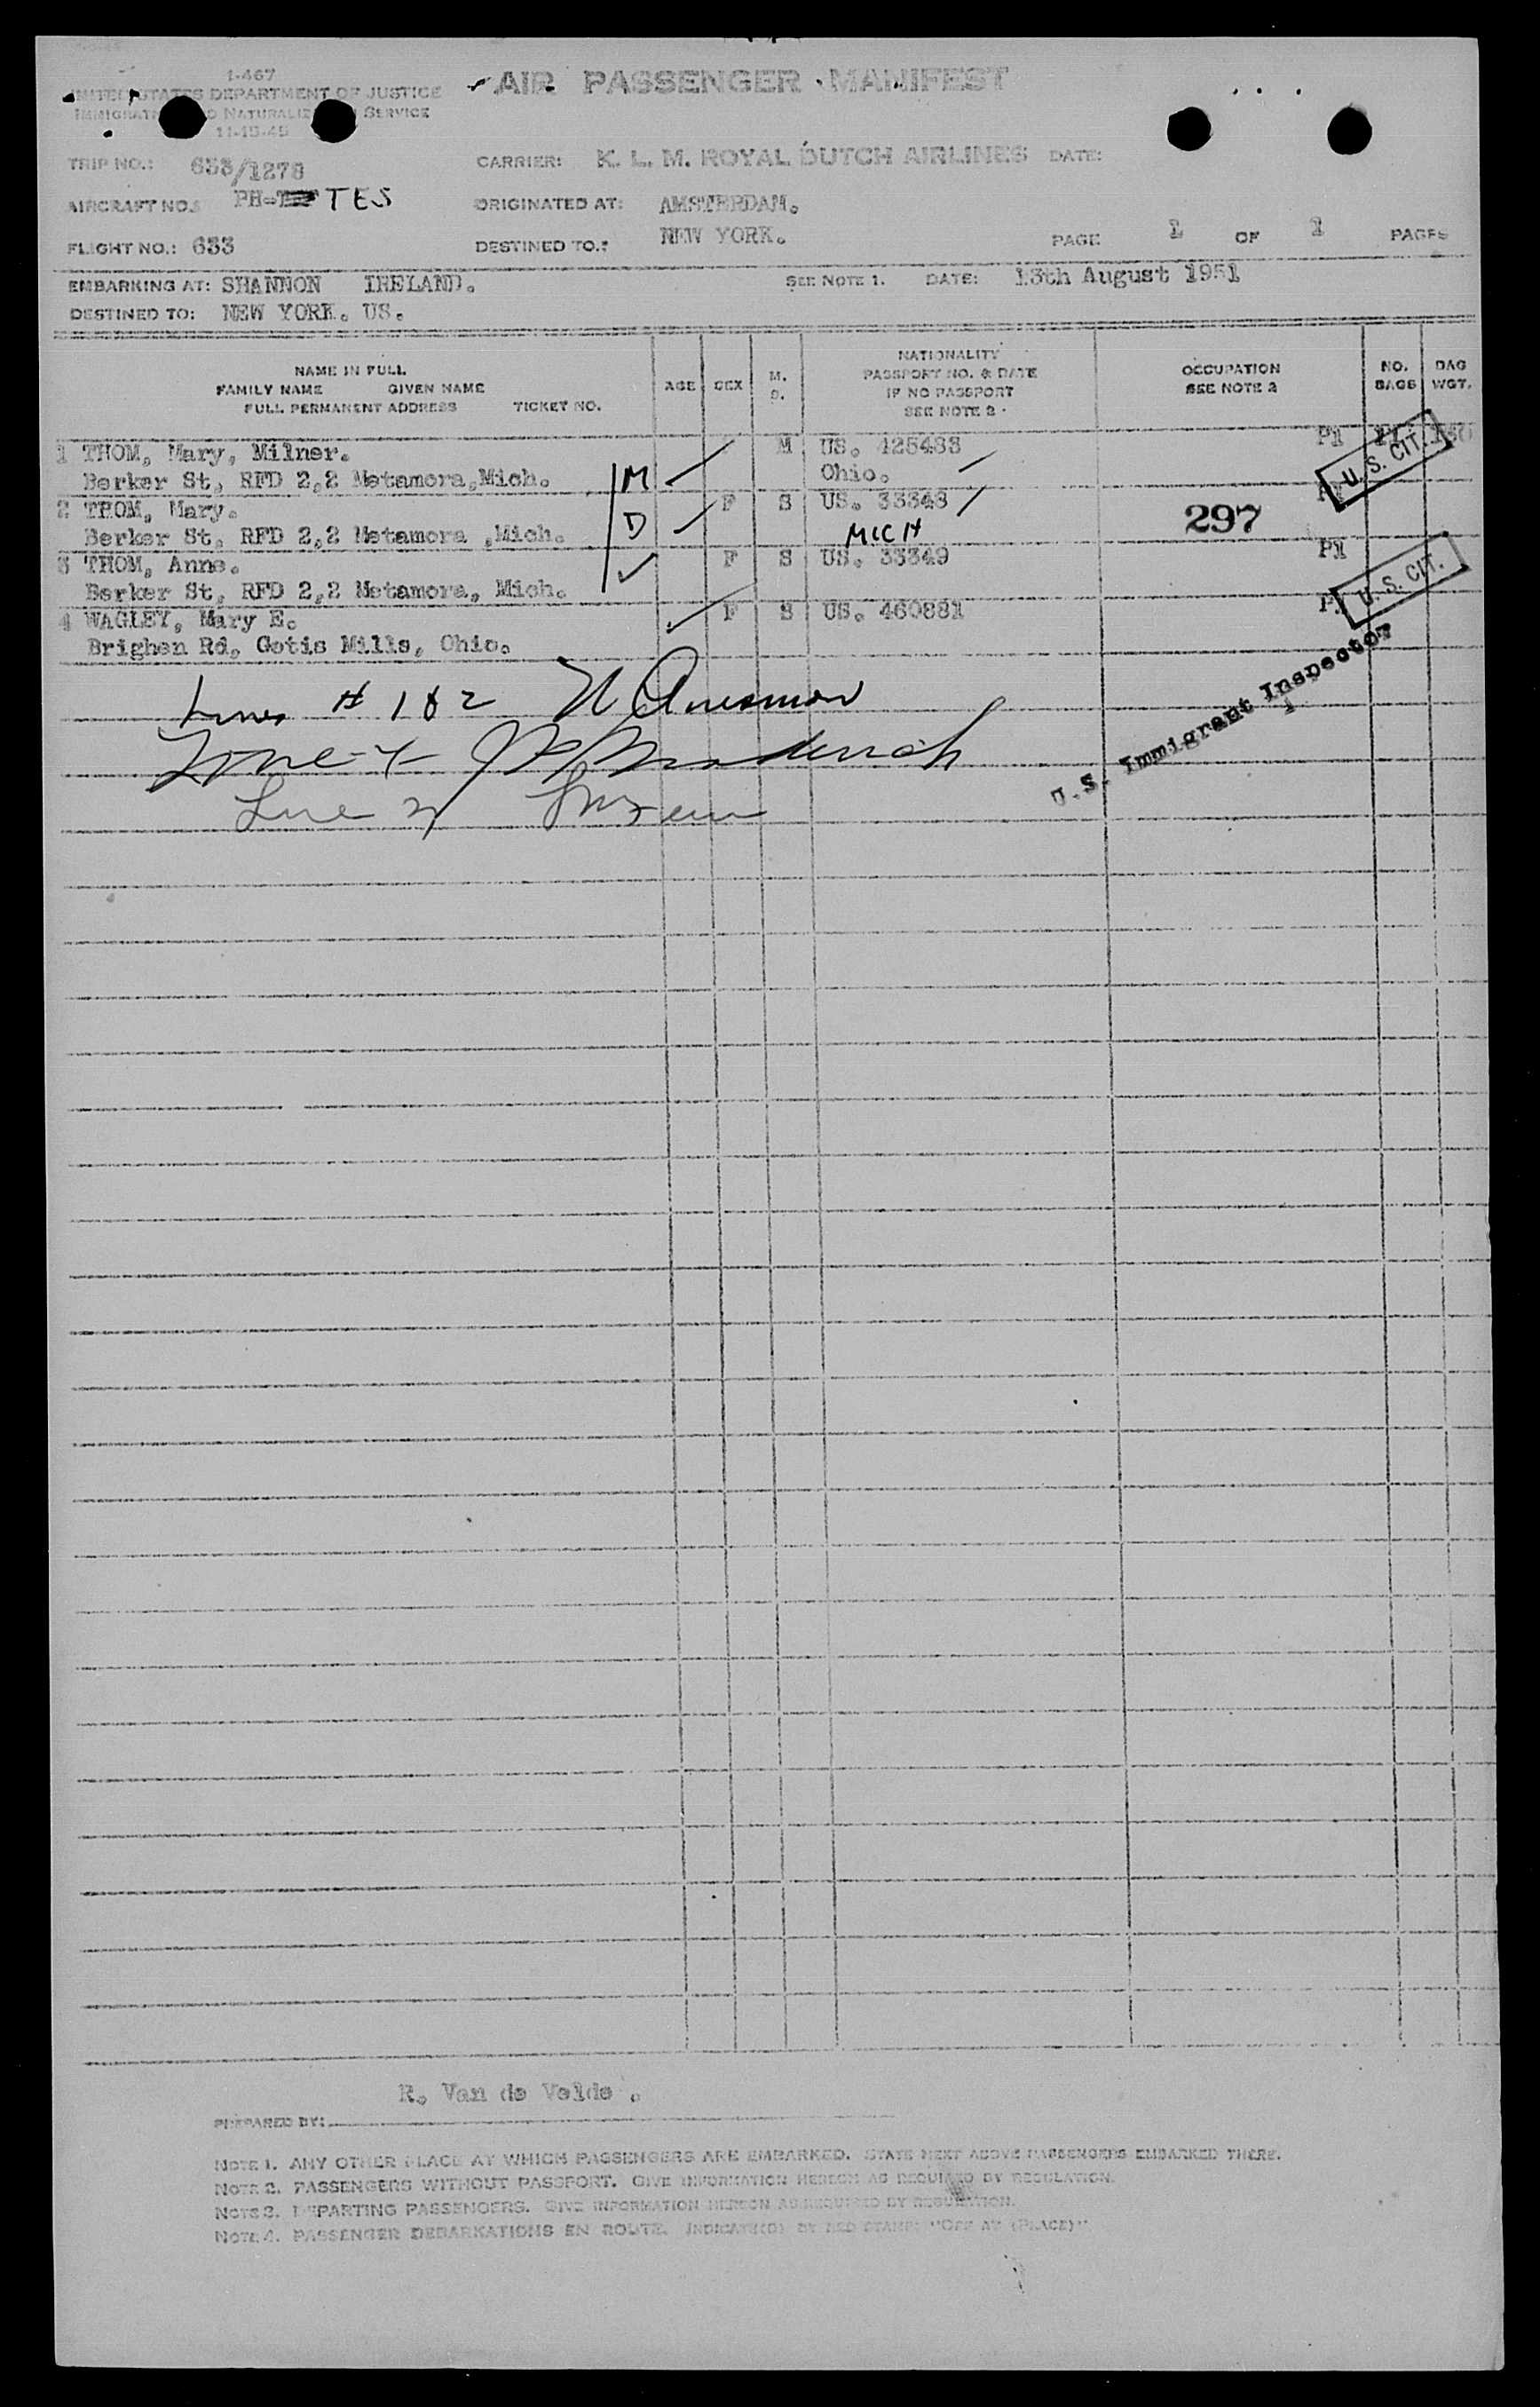 1-467
UNITED STATES DEPARTMENT OF JUSTICE
SERVICE
11-15-45
AIR PASSENGER MANIFEST
TRIP NO.: 633/1278
CARRIER: K. L. M. ROYAL DUTCH AIRLINES DATE:
AIRCRAFT NO. PH- TES
ORIGINATED AT: AMSTERDAM.
FLIGHT NO.: 633
DESTINED TO.: NEW YORK.
PAGE 1 OF 1 PAGES
EMBARKING AT: SHANNON IRELAND. SEE NOTE 1. DATE: 13th August 1951
DESTINED TO: NEW YORK. US.
NAME IN FULL
FAMILY NAME GIVEN NAME
FULL PERMANENT ADDRESS TICKET NO.
AGE
SEX
M.
S.
NATIONALITY
PASSPORT NO. & DATE
IF NO PASSPORT
SEE NOTE 2.
OCCUPATION
SEE NOTE 2
NO.
BAGS
BAG
WGT.
1 THOM, Mary, Milner. M US. 425483
Berker St, RFD 2,2 Metamora,Mich. M Ohio.
U. S. CIT.
2 THOM, Mary. F S US. 33348
Berker St, RFD 2,2 Metamora ,Mich. D MICH
297
3 THOM, Anne. F S US. 33349
Berker St, RFD 2,2 Metamora, Mich.
U. S. CIT.
4 WAGLEY, Mary E. F S US. 460881
Brighen Rd, Getis Mills, Ohio.
Lines # 1 & 2
U.S. Immigrant Inspector
Line
Line
R. Van de Velde .
PREPARED BY:
NOTE 1. ANY OTHER PLACE AT WHICH PASSENGERS ARE EMBARKED. STATE NEXT ABOVE PASSENGERS EMBARKED THERE.
NOTE 2. PASSENGERS WITHOUT PASSPORT. GIVE INFORMATION HEREON AS REQUIRED BY REGULATION.
NOTE 3. DEPARTING PASSENGERS. GIVE INFORMATION HEREON AS REQUIRED BY REGULATION.
NOTE 4. PASSENGER DEBARKATIONS EN ROUTE. INDICATE(D) BY RED STAMP: "OFF AT (PLACE)"